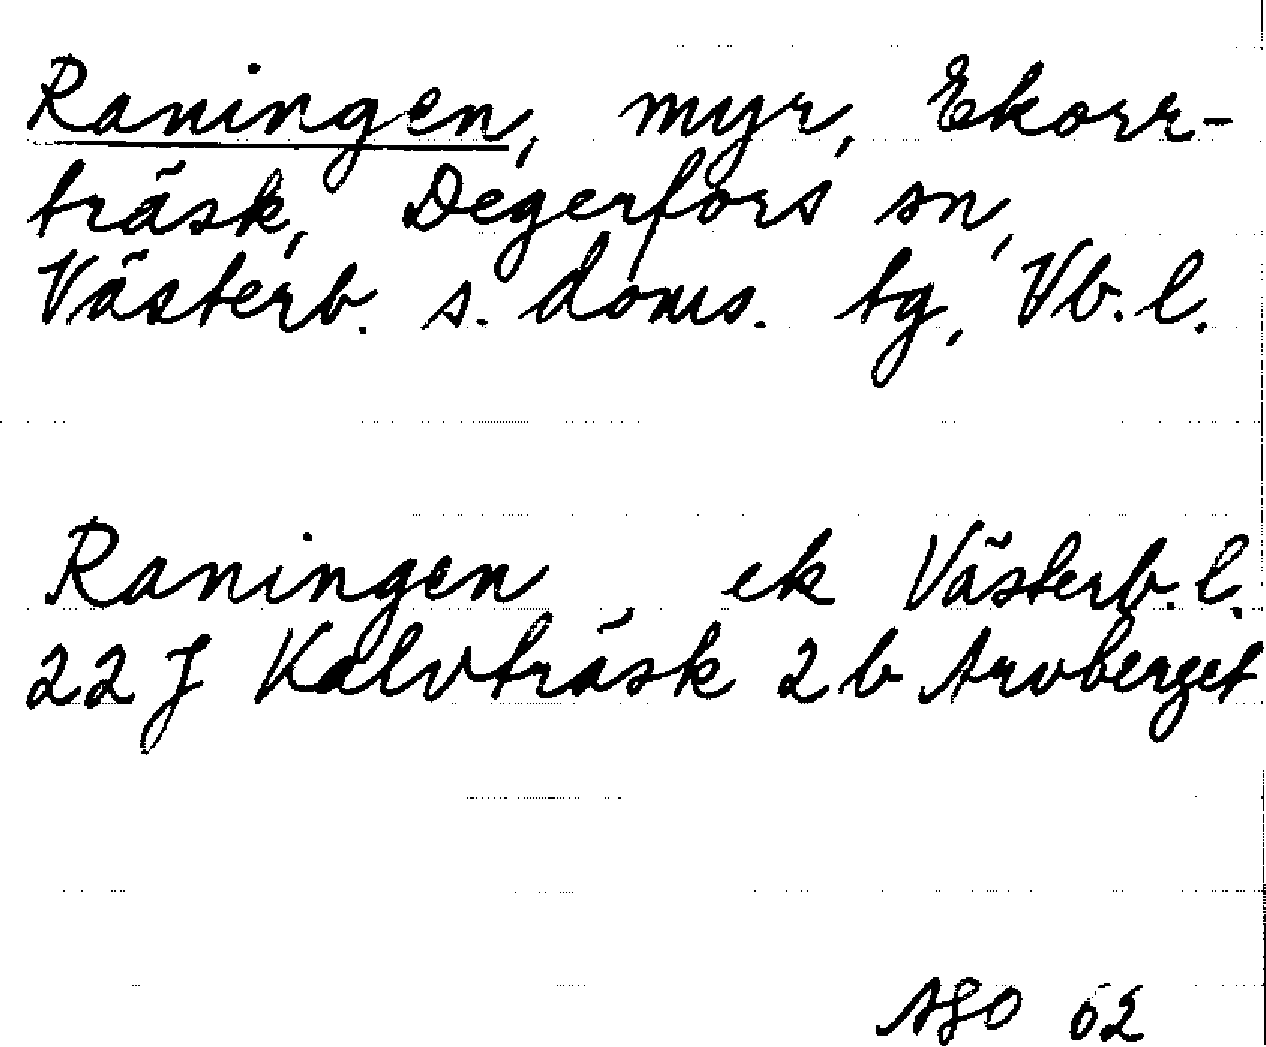 Raningen, myr, Ekorr-
träsk, Degerfors sn,
Västerb. s. doms. tg, Vb. l.
Raningen ek Västerb. l.
22 J Kalvträsk 2 b Arvberget
62